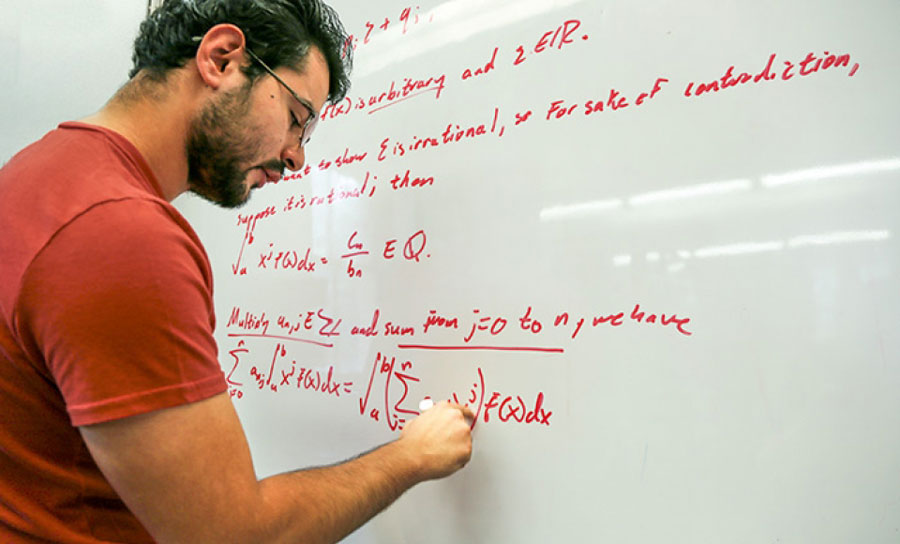 ξ + q_j,
f(x) is arbitrary and ξ ∈ ℝ.
to show ξ is irrational, so For sake of contradiction,
suppose it is rational; then
∫_a^b x^j f(x)dx = c_n/b_n ∈ ℚ.
Multiply a_{n,j} ∈ ℤ and sum from j=0 to n, we have
∑_{j=0}^n a_{n,j} ∫_a^b x^j f(x)dx = ∫_a^b (∑_{j=}^n j) f(x)dx